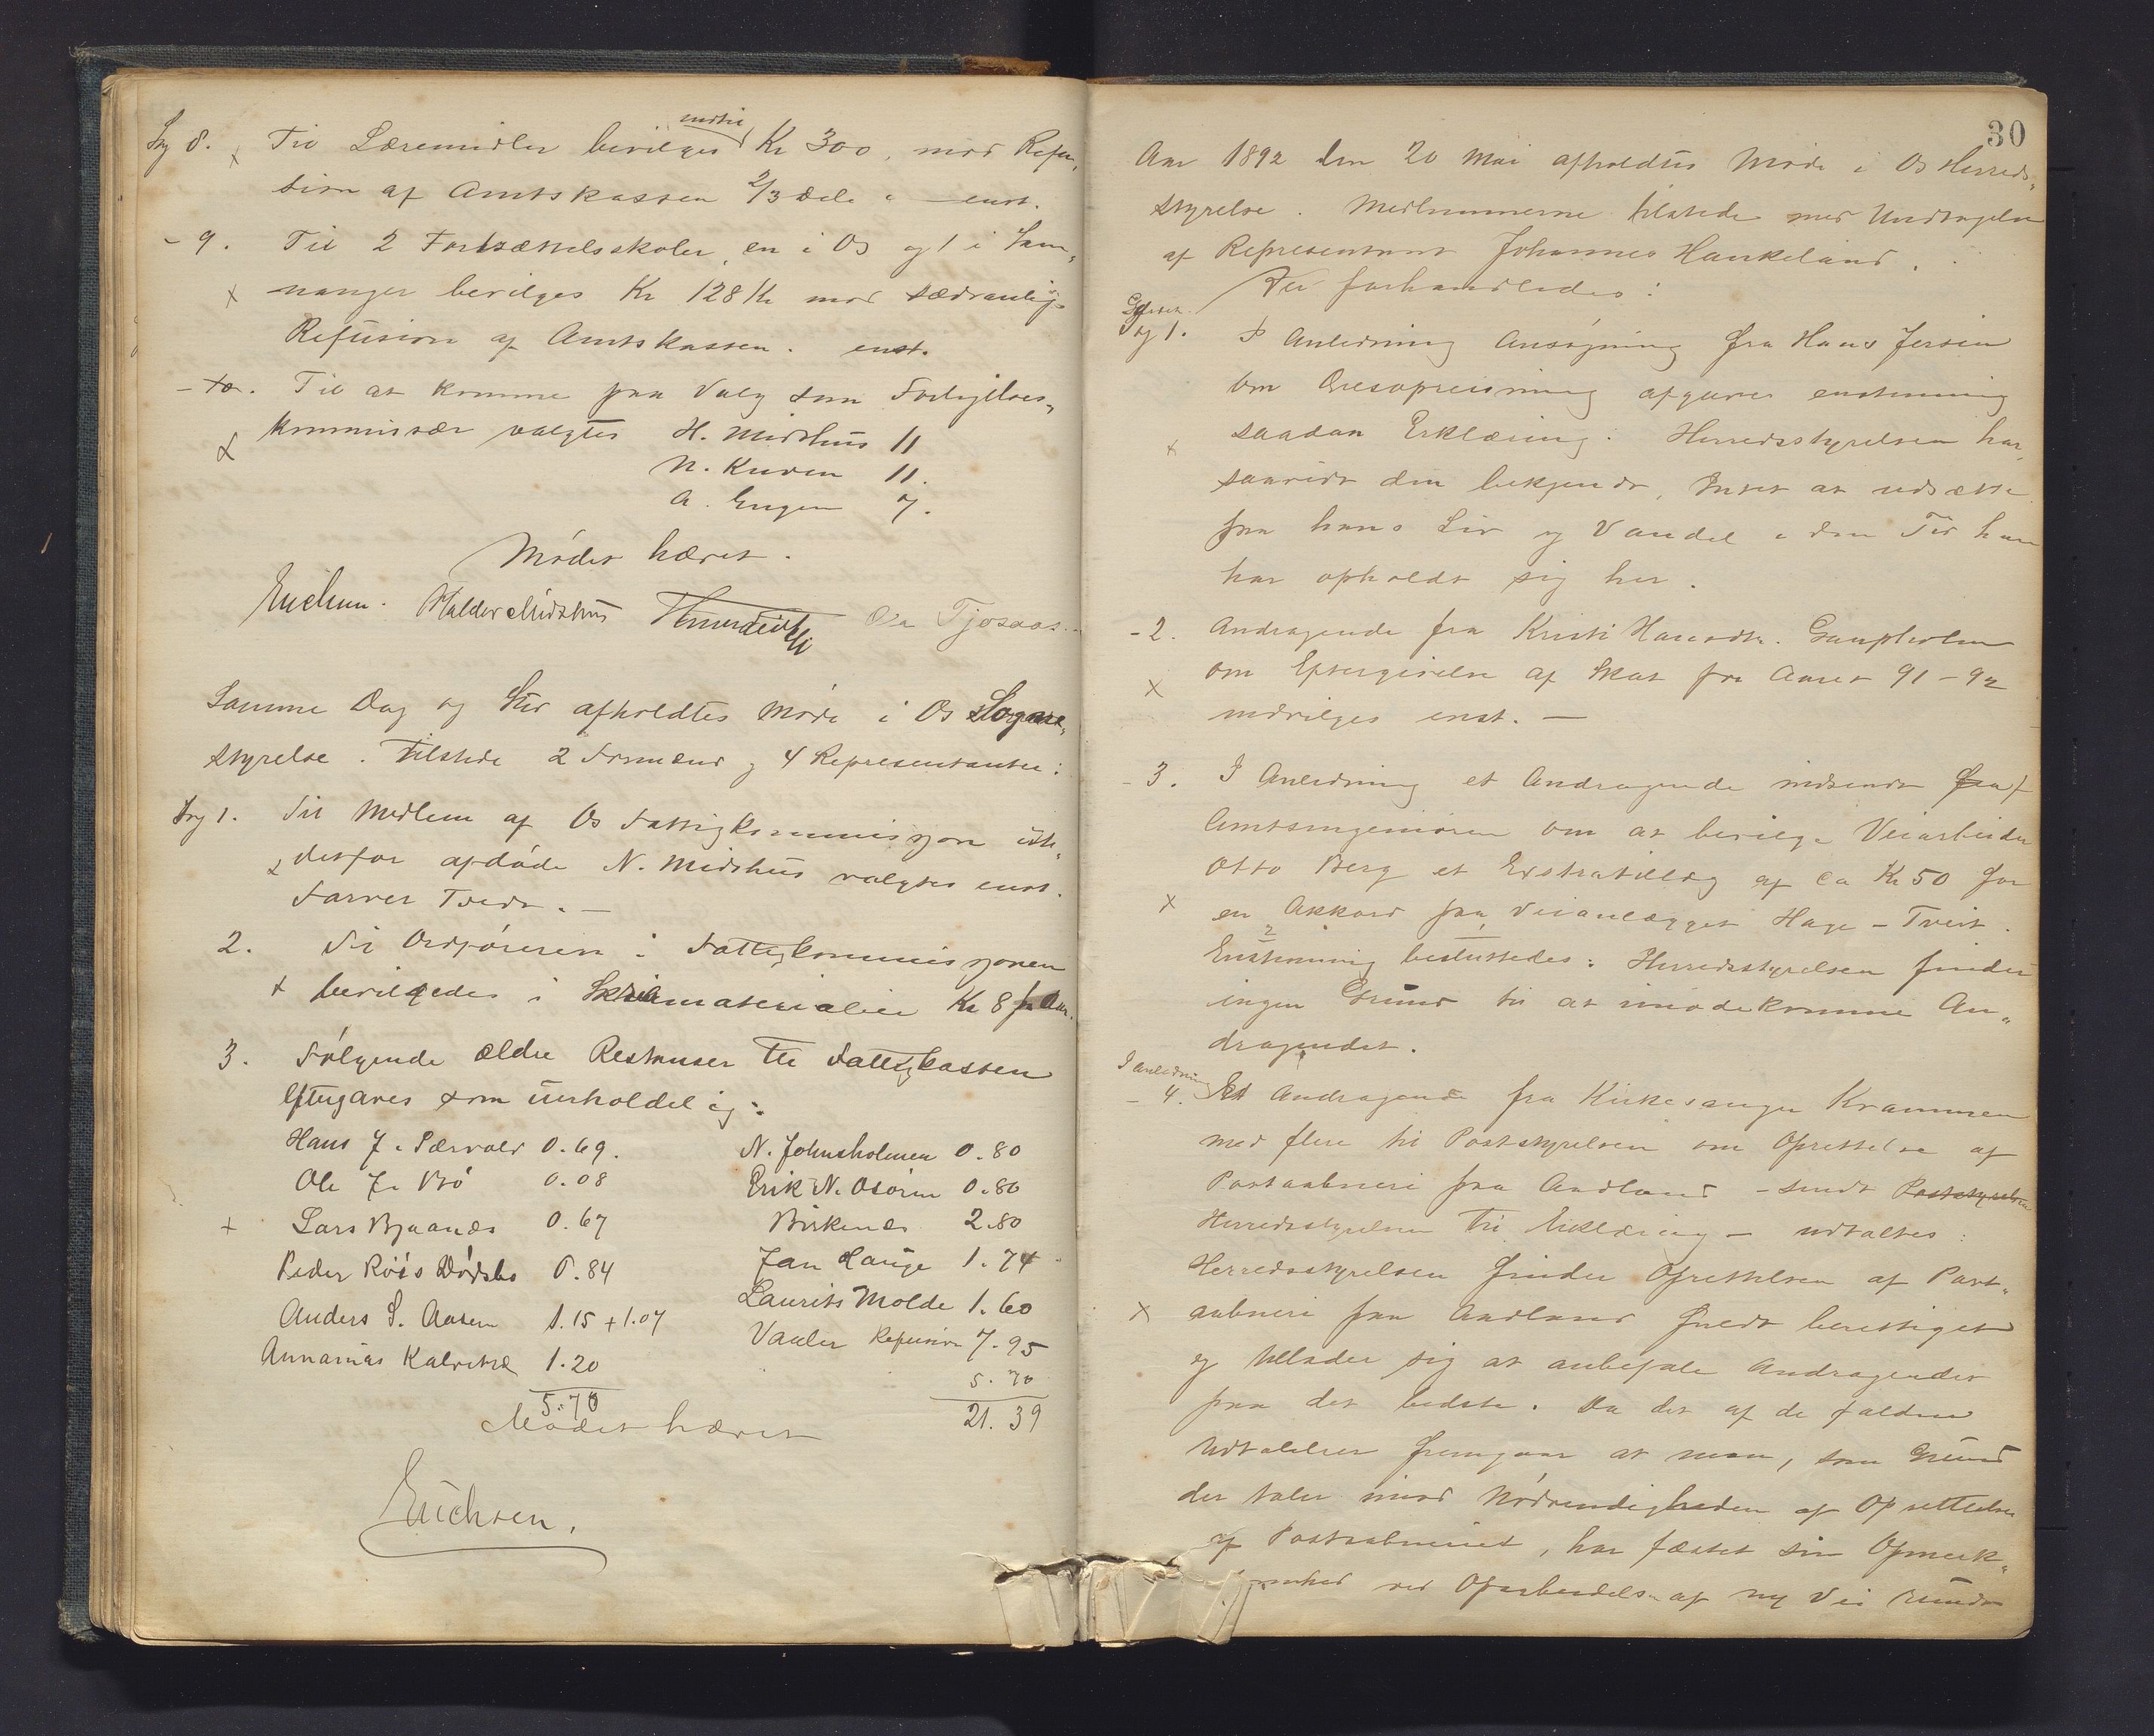 Sag 8. Til Læremidler bevilges indtil Kr 300, mod Refu„
sion af Amtskassen 2/3 Dele enst.
- 9. Til 2 Fortsættelsskoler, en i Os og 1 i Sam„
nanger bevilges Kr 128 Kr mod sædvanlig
Refusion af Amtskassen. enst.
- 10. Til at komme paa Valg som Forligelses„
kommissær valgtes H. Midthus 11
N. Kuven 11.
A. Engen 7.
Mødet hævet.
Erichsen. Haldor Midthus Ole Tjosaas
Samme Dag og Sted afholdtes Møde i Os Sogne„
styrelse. Tilstede 2 Formænd og 4 Representanter:
Sag 1. Til Medlem af Os Fattigkommissjon iste„
detfor afdøde N. Midthus valgtes enst.
Farver Tvedt. —
2. Til Ordføreren i Fattigkommissjonen
bevilgedes i Skrivmaterialier Kr 8 pr Aar.
3. Følgende ældre Restanser til Fattigkassen
eftergaves som uerholdelig:
Hans J. Særvold 0.69. N. Johnsholmen 0.80
Ole J. Bø 0.08 Erik N. Osøren 0.80
Lars Bjaanæs 0.67 Birkenæs 2.80
Peder Røis 0.84 Jan Hauge 1.74
Anders S. Aasen 1.15 + 1.07 Laurits Molde 1.60
Annanias Kalvetræ 1.20 Vaaler Refusion 7.95
5.70 5.70
Mødet hævet 21.39
Erichsen.
30
Aar 1892 den 20 Mai afholdtes Møde i Os Herreds„
styrelse. Medlemmerne tilstede med Undtagelse
af Representant Johannes Haukeland.
Der forhandledes:
Sag 1. I Anledning Ansøgning fra Hans Jersin
om Æresopreisning afgaves enstemmig
saadan Erklæring: Herredsstyrelsen har,
saavidt den bekjendt, Intet at udsætte
paa hans Liv og Vandel i den Tid han
har opholdt sig her.
- 2. Andragende fra Kristi Hansdtr. Gaupholm
om Eftergivelse af Skat for Aaret 91 - 92
indvilges enst. —
- 3. I Anledning et Andragende indsendt fra
Amtsingeniøren om at bevilge Veiarbeider
Otto Berg et Extratillæg af ca Kr 50 for
en Akkord paa Veianlægget Hage - Tveit.
Enstemmig besluttedes: Herredsstyrelsen finder
ingen Grund til at imødekomme An„
dragendet.
I anledning
- 4. Et Andragende fra Kirkesanger Krammen
med flere til Poststyrelsen om Oprettelse af
Postaabneri paa Aadland - sendt Poststyrelsen
Herredsstyrelsen til Erklæring - udtaltes:
Herredsstyrelsen finder Oprettelsen af Post„
aabneri paa Aadland fuldt berettiget
og tillader sig at anbefale Andragendet
paa det bedste. Da det af de faldne
Udtalelser fremgaar at man, som Grund
der taler imod Nødvendigheden af Oprettelsen
af Postaabneriet, har fæstet sin Opmerk„
somhed ved Oparbeidelse af ny Vei rundt